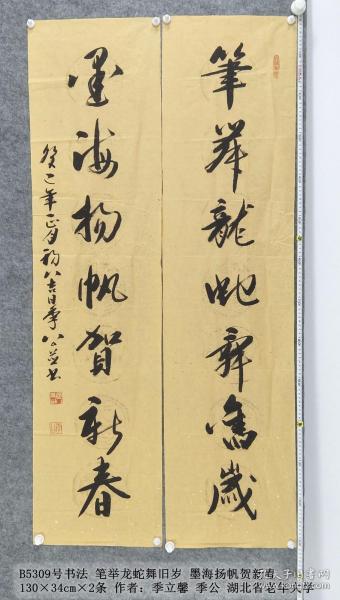 筆举龍虵舞舊歲
墨海扬帆賀新春
癸巳年正月初八吉日季公书
B5309号书法 笔举龙蛇舞旧岁 墨海扬帆贺新春
130×34cm×2条 作者：季立馨 季公 湖北省老年大学